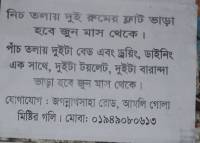 নিচ তলায় দুই রুমের ফ্লাট ভাড়া
হবে জুন মাস থেকে ।
পাঁচ তলায় দুইটা বেড এবং ড্রয়িং, ডাইনিং
এক সাথে, দুইটা টয়লেট, দুইটা বারান্দা
ভাড়া হবে জুন মাস থেকে ।
যোগাযোগ : জগন্নাথসাহা রোড, আমলি গোলা
মিষ্টির গলি । মোবা: ০১৯৪৯০৮০৬১৩